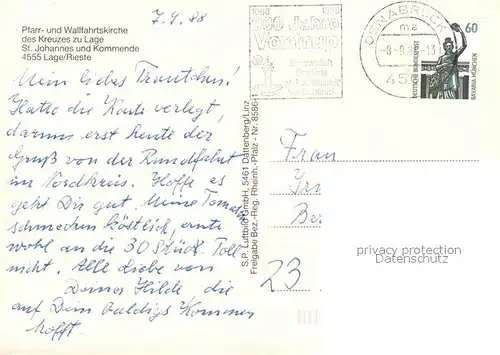 Pfarr- und Wallfahrtskirche
des Kreuzes zu Lage
St. Johannes und Kommende
4555 Lage/Rieste
7.9.88
Mein liebes Trautchen!
Hatte die Karte verlegt,
darum erst heute der
Gruß von der Rundfahrt
im Nordkreis. Hoffe es
geht Dir gut. Meine Tomaten
schmecken köstlich, ernte
wohl an die 30 Stück. Toll
nicht. Alle Liebe von
Deiner Hilde die
auf Dein baldiges Kommen
hofft.
S.P. Luftbild GmbH, 5461 Dattenberg/Linz
Freigabe Bez.-Reg. Rheinh.-Pfalz - Nr. 8586-1
1088 1988
900 Jahre
Vordrup
OSNABRÜCK
ma
-9.9.88-13
45
60
DEUTSCHE BUNDESPOST
BAVARIA MÜNCHEN
Frau
Ir
Be
23
privacy protection
Datenschutz